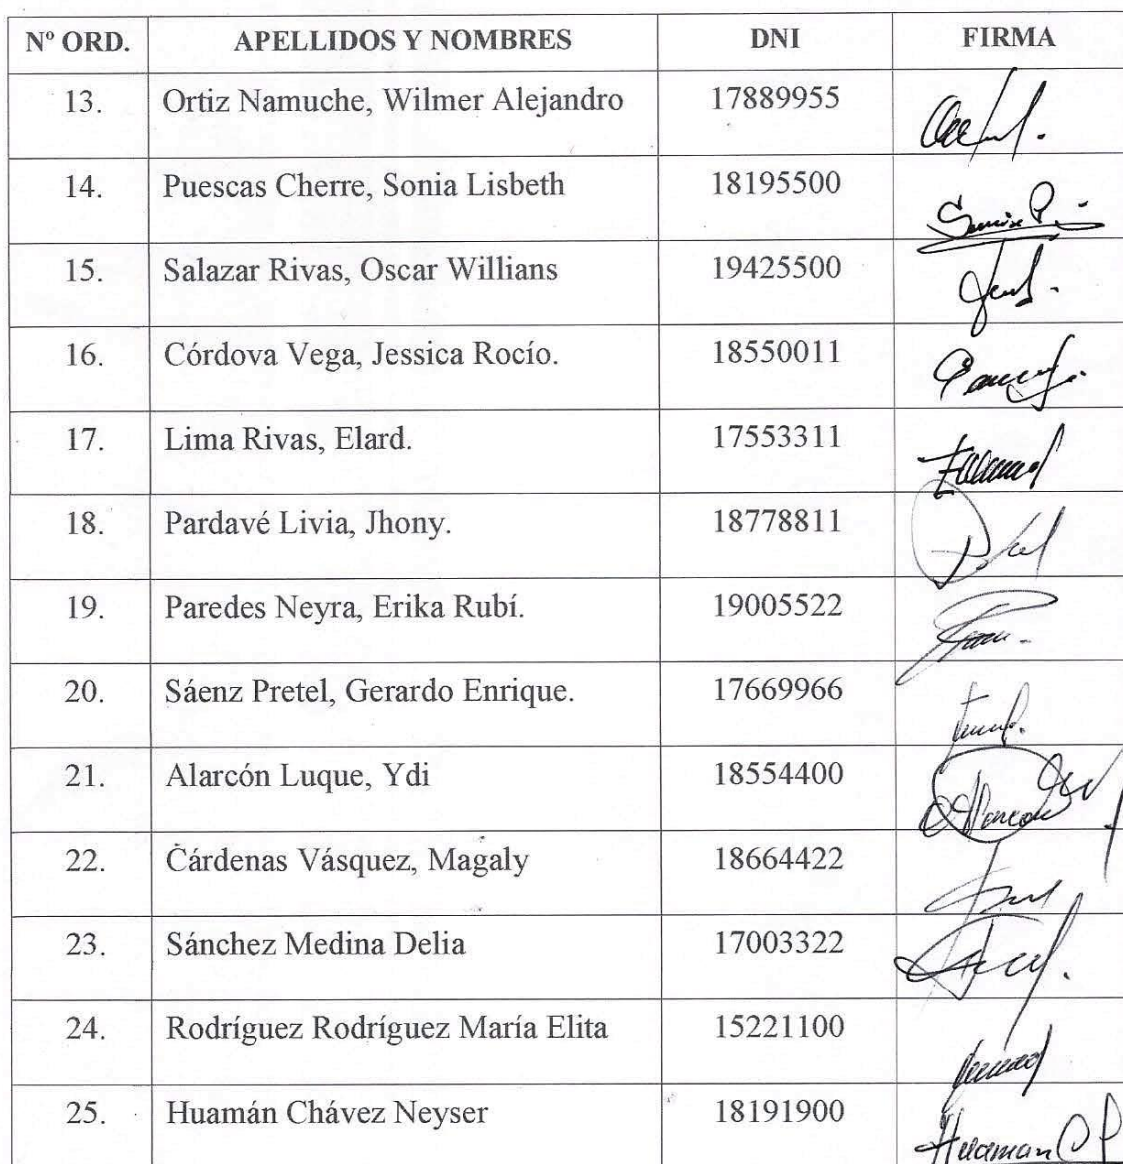 Nº ORD. APELLIDOS Y NOMBRES DNI FIRMA
13. Ortiz Namuche, Wilmer Alejandro 17889955
14. Puescas Cherre, Sonia Lisbeth 18195500
15. Salazar Rivas, Oscar Willians 19425500
16. Córdova Vega, Jessica Rocío. 18550011
17. Lima Rivas, Elard. 17553311
18. Pardavé Livia, Jhony. 18778811
19. Paredes Neyra, Erika Rubí. 19005522
20. Sáenz Pretel, Gerardo Enrique. 17669966
21. Alarcón Luque, Ydi 18554400
22. Cárdenas Vásquez, Magaly 18664422
23. Sánchez Medina Delia 17003322
24. Rodríguez Rodríguez María Elita 15221100
25. Huamán Chávez Neyser 18191900 Huaman